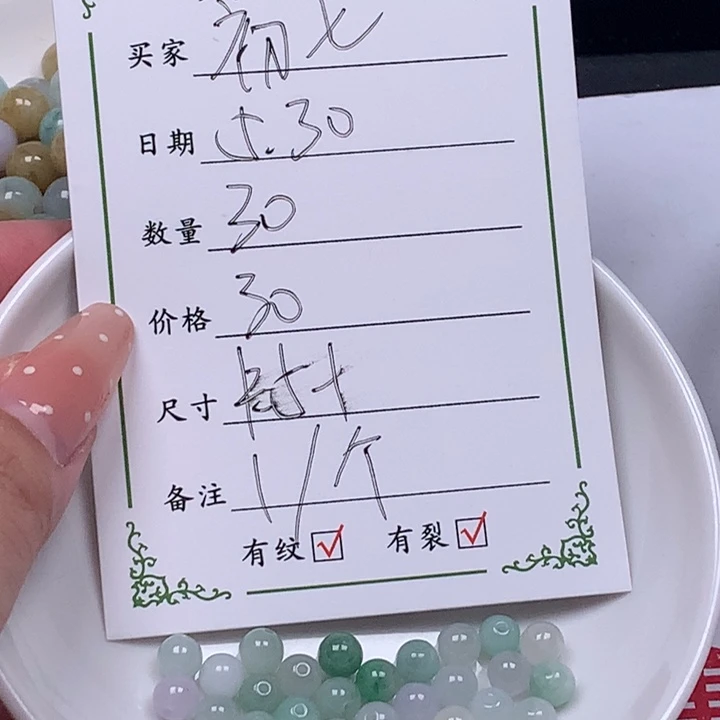 买家 初七
日期 5.30
数量 30
价格 30
尺寸
备注 1/个
有纹 ☑ 有裂 ☑